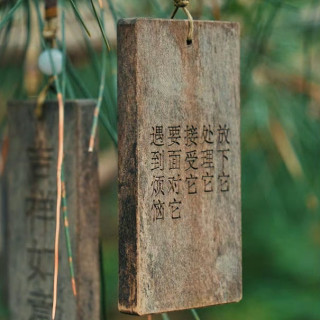 遇到烦恼
要面对它
接受它
处理它
放下它